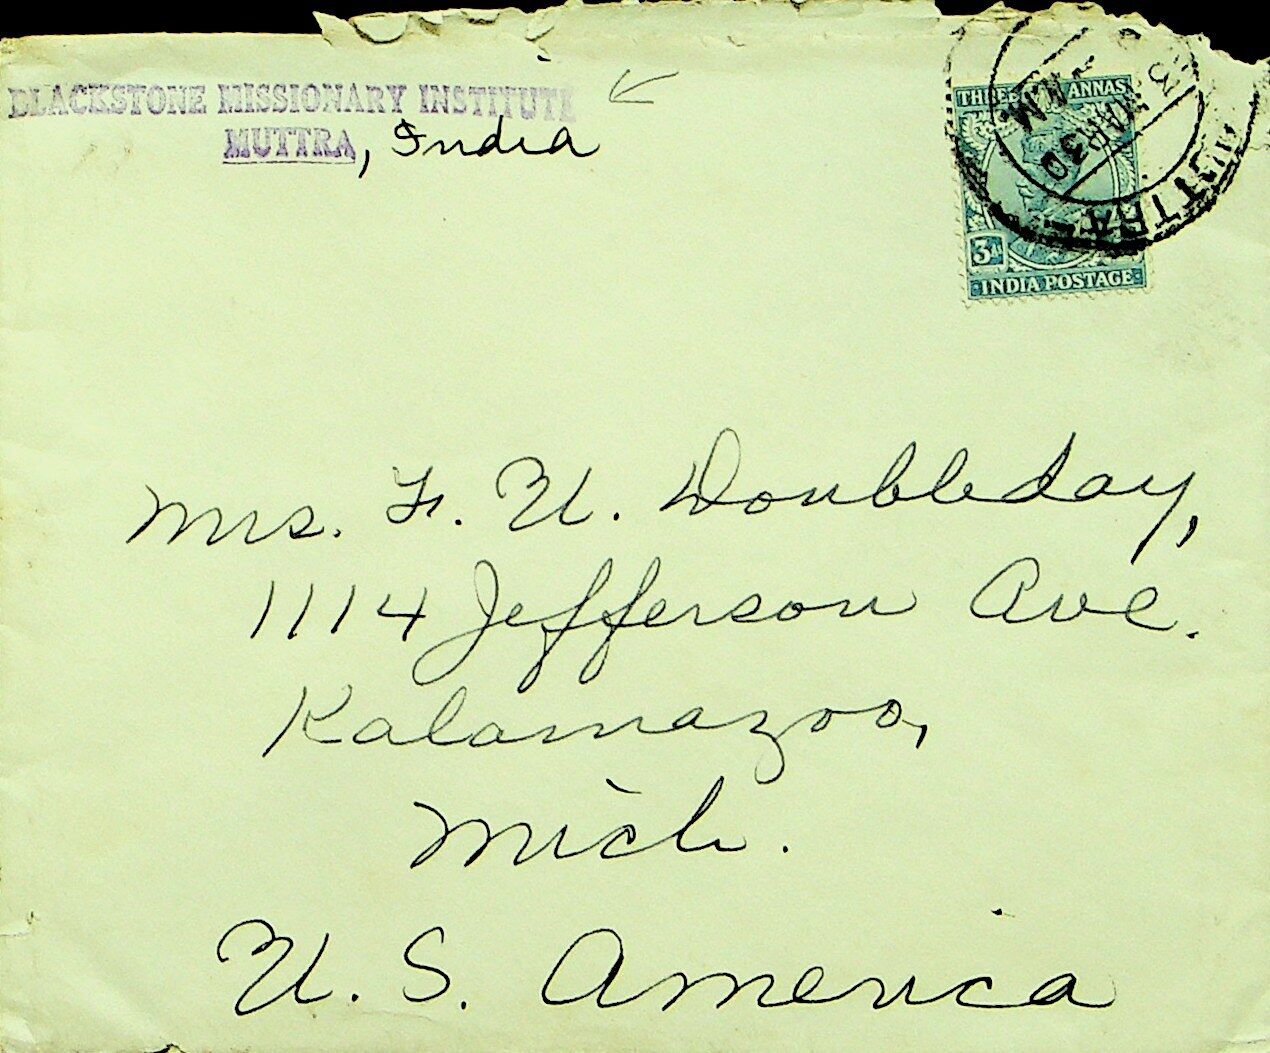 BLACKSTONE MISSIONARY INSTITUTE
MUTTRA, India
ANNAS
3A
INDIA POSTAGE
Mrs. F. U. Doubleday,
1114 Jefferson Ave.
Kalamazoo,
Mich.
U. S. America